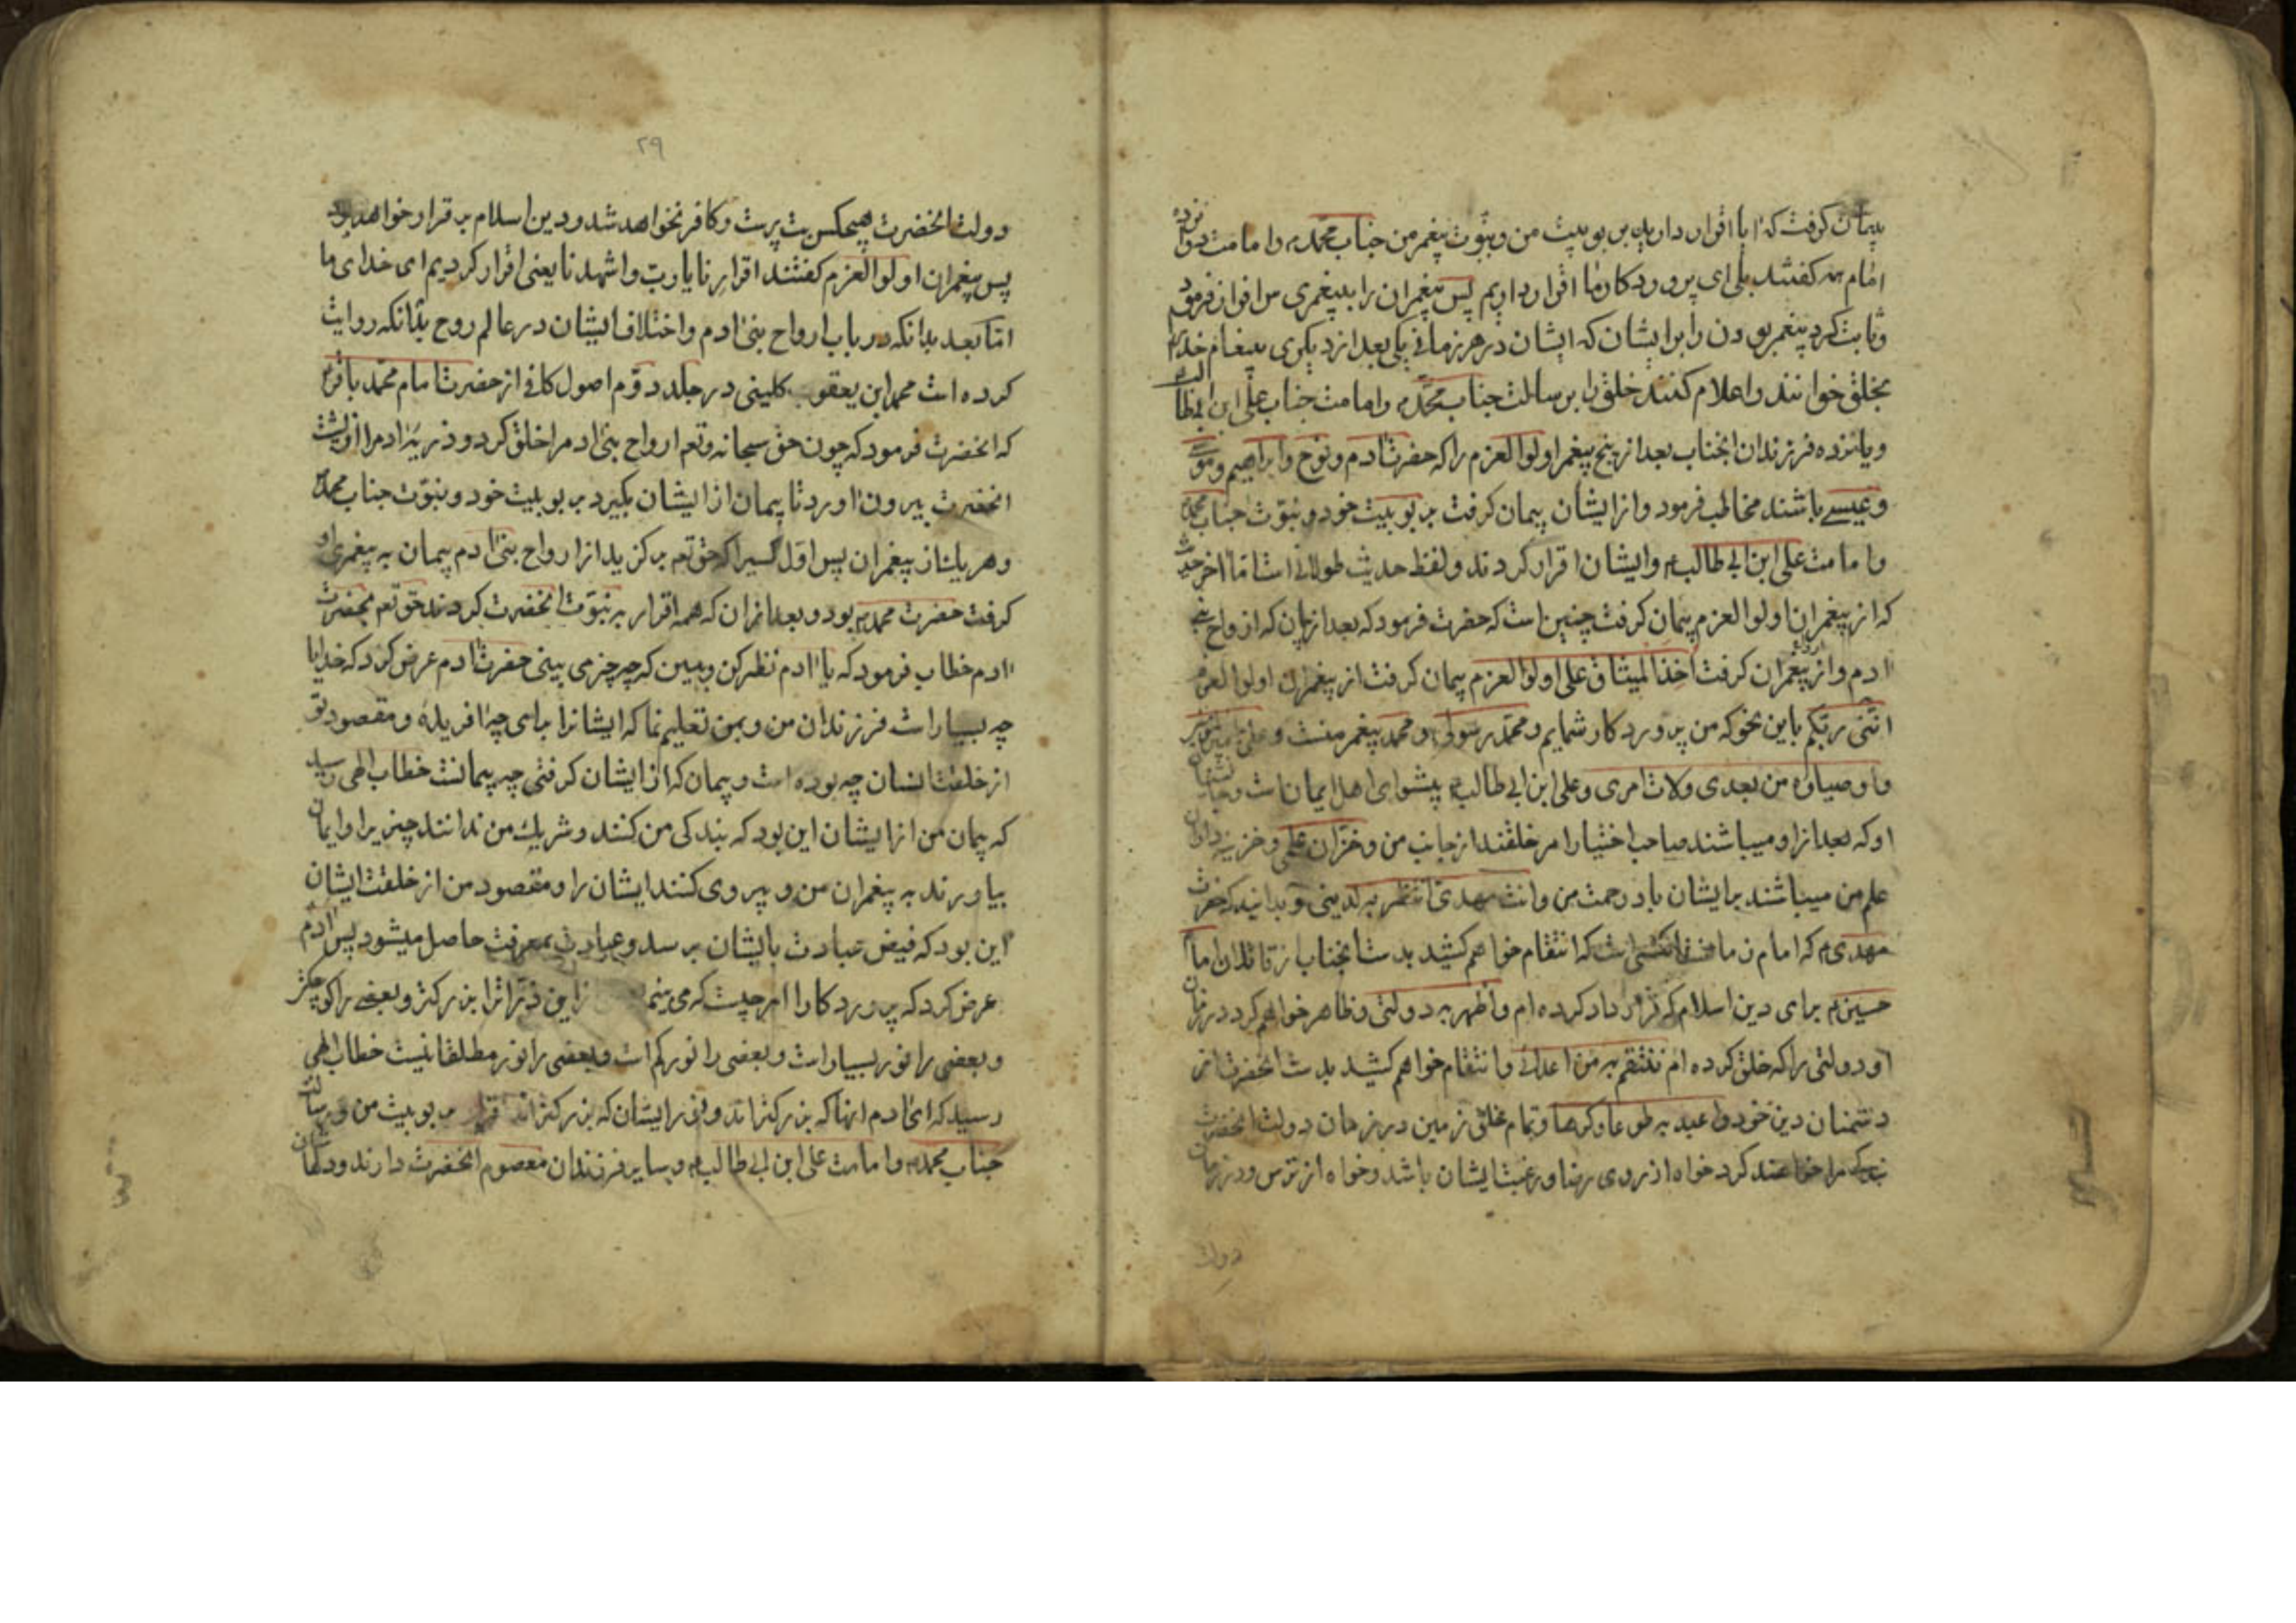 پیمان گرفت که آیا اقرار دارید بربوبیت من و بنبوت پیغمر من جناب محمد ص و امامت دوازده
امام همه گفتند بلی ای پروردگار ما اقرار داریم پس پیغمران را به پیغمری سرافراز فرمود
و ثابت کرد پیغمر بودن را برایشان که ایشان در هر زمانی یکی بعد از دیگری پیغام خدا را
بخلق خوانند و اعلام کنند خلق را برسالت جناب محمد ص و امامت جناب علی ابن ابیطالب
و یانزده فرزندان انجناب بعد از پنج پیغمر اولوالعزم را که حضرت آدم و نوح و ابراهیم و موسی
و عیسی باشند مخاطب فرمود و از ایشان پیمان گرفت بربوبیت خود و نبوت جناب محمد ص
و امامت علی ابن ابی طالب ع و ایشان اقرار کردند و لفظ حدیث طولانی است اما آخر حدیث
که از پیغمران اولوالعزم پیمان گرفت چنین است که حضرت فرمود که بعد از پیمان که از ارواح بنی
آدم و از پیغمران گرفت اخذ المیثاق علی اولوالعزم پیمان گرفت از پیغمران اولوالعزم
اننی ربکم باین نحو که من پروردگار شمایم و محمد رسولی و محمد پیغمر منست و علی امیرالمؤمنین
و اوصیاؤه من بعدی ولات امری و علی ابن ابی طالب ع پیشوای اهل ایمان است و جانشینان
او که بعد از او میباشند صاحب اختیار امر خلقند از جانب من و خزان علمی و خزینه داران
علم من میباشند برایشان باد رحمت من و انت مهدی انتظر به لدینی و بدانید که حضرت
مهدی ع که امام زمانست کسی است که انتقام خواهم کشید بدست انجناب از قاتلان امام
حسین ع برای دین اسلام که قرار داد کرده ام و اظهر به دولتی و ظاهر خواهم کرد در زمان
او دولتی را که خلق کرده ام ننتقم به من اعدائی و انتقام خواهم کشید بدست انحضرت از
دشمنان دین خود و اعبد به طوعا و کرها و تمام خلق زمین در زمان دولت انحضرت
بندگی مرا خواهند کرد خواه از روی رضا و رغبت ایشان باشد و خواه از ترس و در زمان
دولت
۲۹
دولت انحضرت هیچکس بت پرست و کافر نخواهد شد و دین اسلام برقرار خواهد بود
پس پیغمران اولوالعزم گفتند اقررنا یا رب و اشهدنا یعنی اقرار کردیم ای خدای ما
اما بعد بدانکه در باب ارواح بنی آدم و اختلاف ایشان در عالم روح بدانکه روایت
کرده است محمد ابن یعقوب کلینی در جلد دوم اصول کافی از حضرت امام محمد باقر ع
که انحضرت فرمود که چون حق سبحانه و تعم ارواح بنی آدم را خلق کرد و ذریه آدم را از پشت
انحضرت بیرون آورد تا پیمان از ایشان بگیرد بربوبیت خود و بنبوت جناب محمد ص
و هر یک از پیغمران پس اول کسیرا که حق تعم برگزید از ارواح بنی آدم پیمان به پیغمری او
گرفت حضرت محمد ص بود و بعد از آن که همه اقرار به نبوت انحضرت کردند حق تعم بحضرت
آدم خطاب فرمود که یا آدم نظر کن و ببین که چه چیز می بینی حضرت آدم عرض کرد که خدایا
چه بسیار است فرزندان من و بمن تعلیم نما که ایشانرا برای چه آفریدۀ و مقصود تو
از خلقت انسان چه بوده است و پیمان که از ایشان گرفتی چه پیمانست خطاب الهی رسید
که پیمان من از ایشان این بود که بندگی من کنند و شریک من ندانند چیزیرا و ایمان
بیاورند به پیغمران من و پیروی کنند ایشان را و مقصود من از خلقت ایشان
این بود که فیض عبادت بایشان برسد و عبادت بمعرفت حاصل میشود پس آدم
عرض کرد که پروردگارا امر چیست که می بینم از این ذرات را بزرگتر و بعضی را کوچکتر
و بعضی را نور بسیار است و بعضی را نور کم است و بعضی را نور مطلقا نیست خطاب الهی
رسید که ای آدم انها که بزرگترند و نور ایشان که بزرگتر اند اقرار بربوبیت من و رسالت
جناب محمد ص و امامت علی ابن ابی طالب ع و سایر فرزندان معصوم انحضرت دارند و در کمان